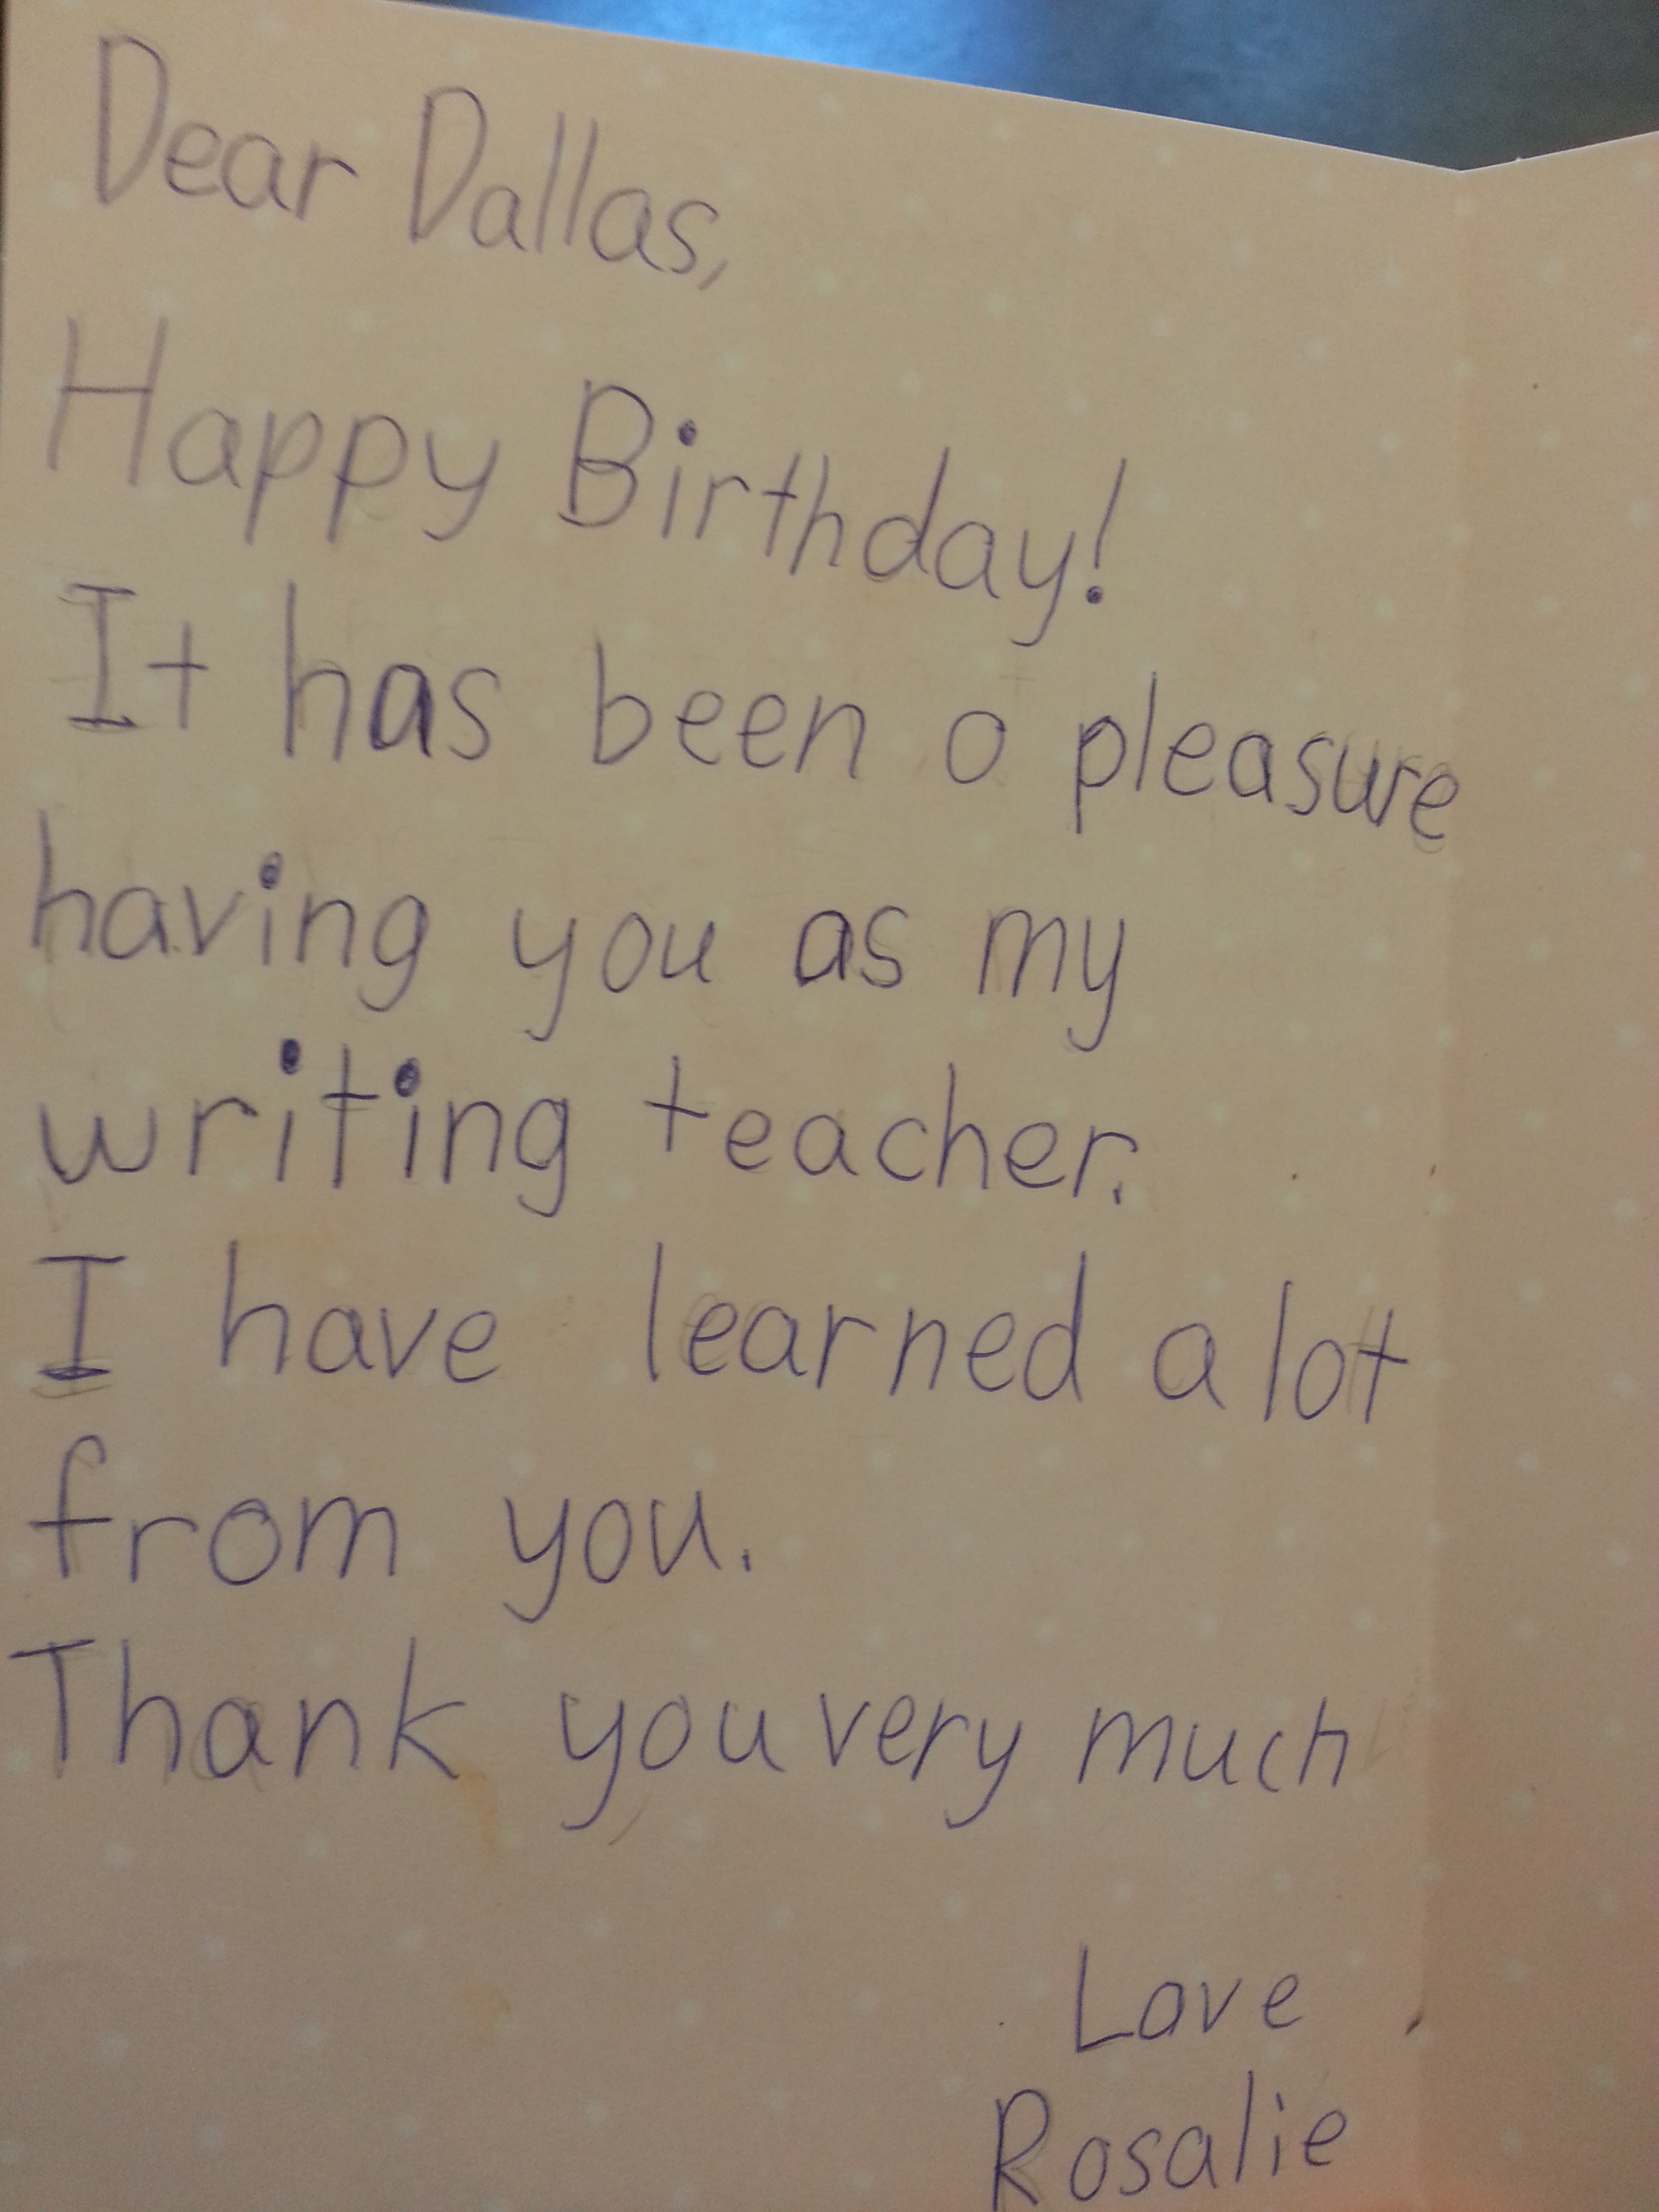 Dear Dallas,
Happy Birthday!
It has been a pleasure
having you as my
writing teacher.
I have learned a lot
from you.
Thank you very much
Love
Rosalie